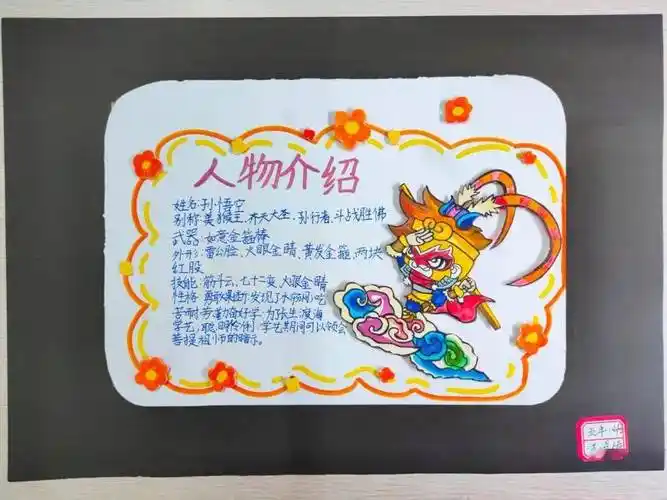 人物介绍
姓名:孙悟空
别称:美猴王、齐天大圣、孙行者、斗战胜佛
武器:如意金箍棒
外形:雷公脸、火眼金睛、黄发金箍、两块
红股
技能:筋斗云、七十二变、火眼金睛
性格:勇敢 发现了水帘洞,吃
苦耐劳勤奋好学:为了长生渡海
学艺,聪明伶俐:学艺期间可以领会
菩提祖师的暗示。